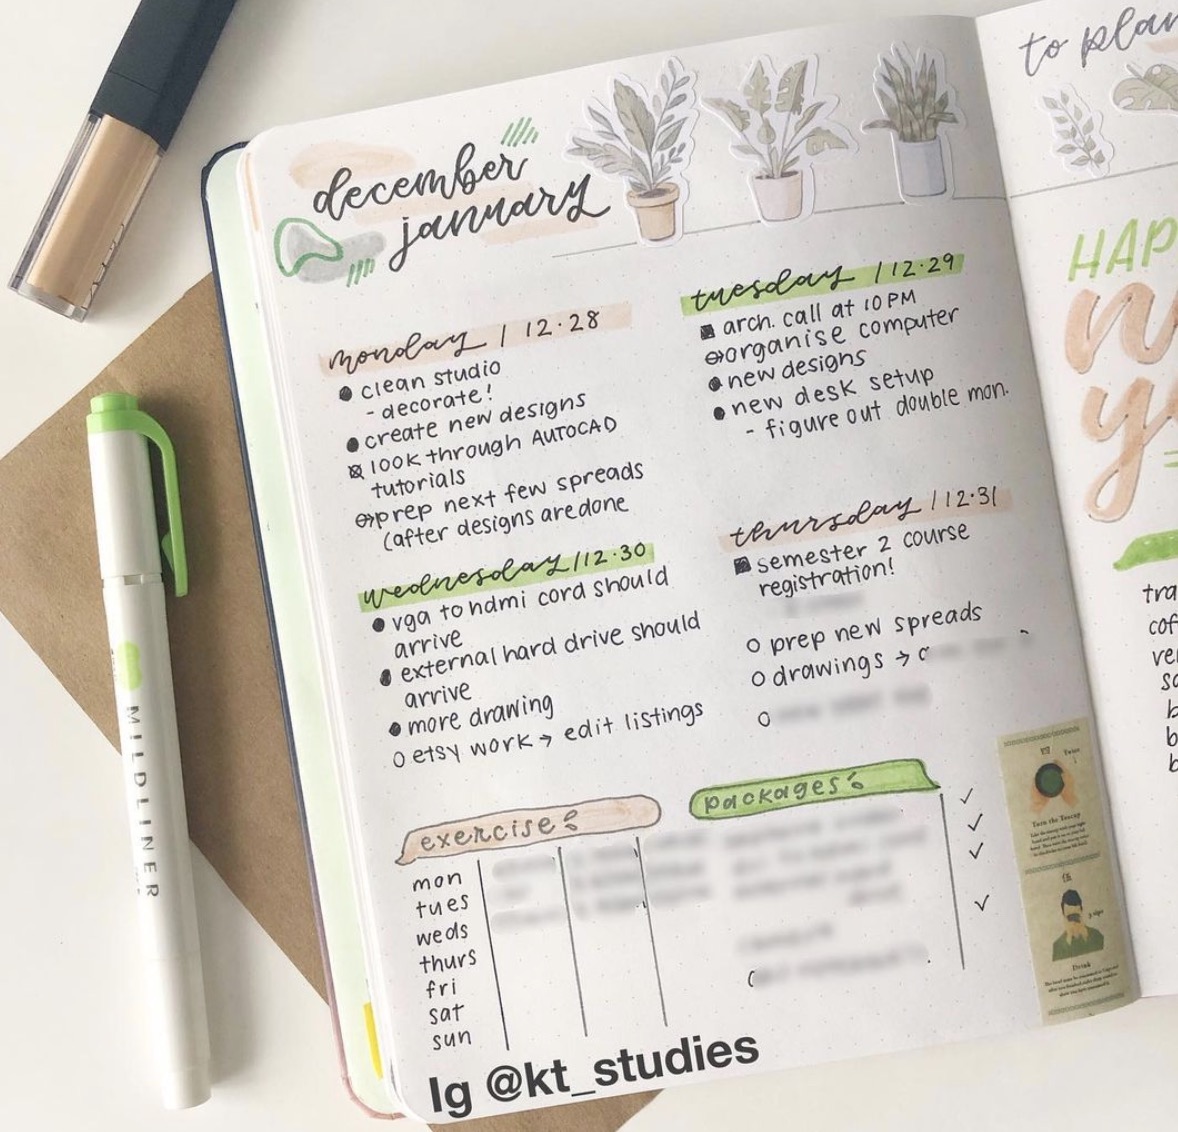 december
january
to plan
monday | 12.28
clean studio
- decorate!
create new designs
look through AUTOCAD
tutorials
prep next few spreads
(after designs are done
tuesday | 12.29
arch. call at 10 PM
organise computer
new designs
new desk setup
- figure out double mon.
wednesday | 12.30
vga to hdmi cord should
arrive
external hard drive should
arrive
more drawing
etsy work → edit listings
thursday | 12.31
semester 2 course
registration!
prep new spreads
drawings →
HAP
tra
cof
ver
exercise:
mon
tues
weds
thurs
fri
sat
sun
packages:
Turn the Teacup
Drink
MILDLINER
Ig @kt_studies